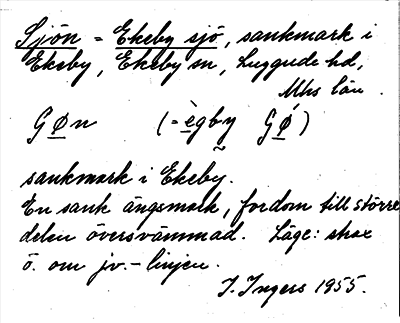 Sjön = Ekeby sjö, sankmark i
Ekeby, Ekeby sn, Luggude hd,
Mhs län.
GØn (=ègby GǾ)
sankmark i Ekeby.
En sank ängsmark, fordom till större
delen översvämmad. Läge: strax
ö. om jv.-linjen.
I. Ingers 1955.